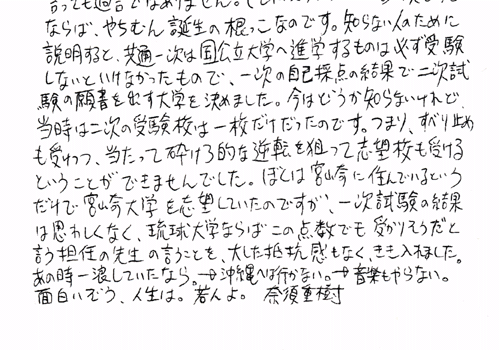 言っても過言ではありません。
ならば、やちむん誕生の根っこなのです。知らない人のために
説明すると、共通一次は国公立大学へ進学するものは必ず受験
しないといけなかったもので、一次の自己採点の結果で二次試
験の願書を出す大学を決めました。今はどうか知らないけれど、
当時は二次の受験校は一枚だけだったのです。つまり、すべり止め
も受けつつ、当たって砕けろ的な逆転を狙って志望校も受ける
ということができませんでした。ぼくは宮崎に住んでいるという
だけで宮崎大学を志望していたのですが、一次試験の結果
は思わしくなく、琉球大学ならばこの点数でも受かりそうだと
言う担任の先生の言うことを、大した抵抗感もなく、きき入れました。
あの時一浪していたなら。→沖縄へは行かない。→音楽もやらない。
面白いぞう、人生は。若人よ。 奈須重樹